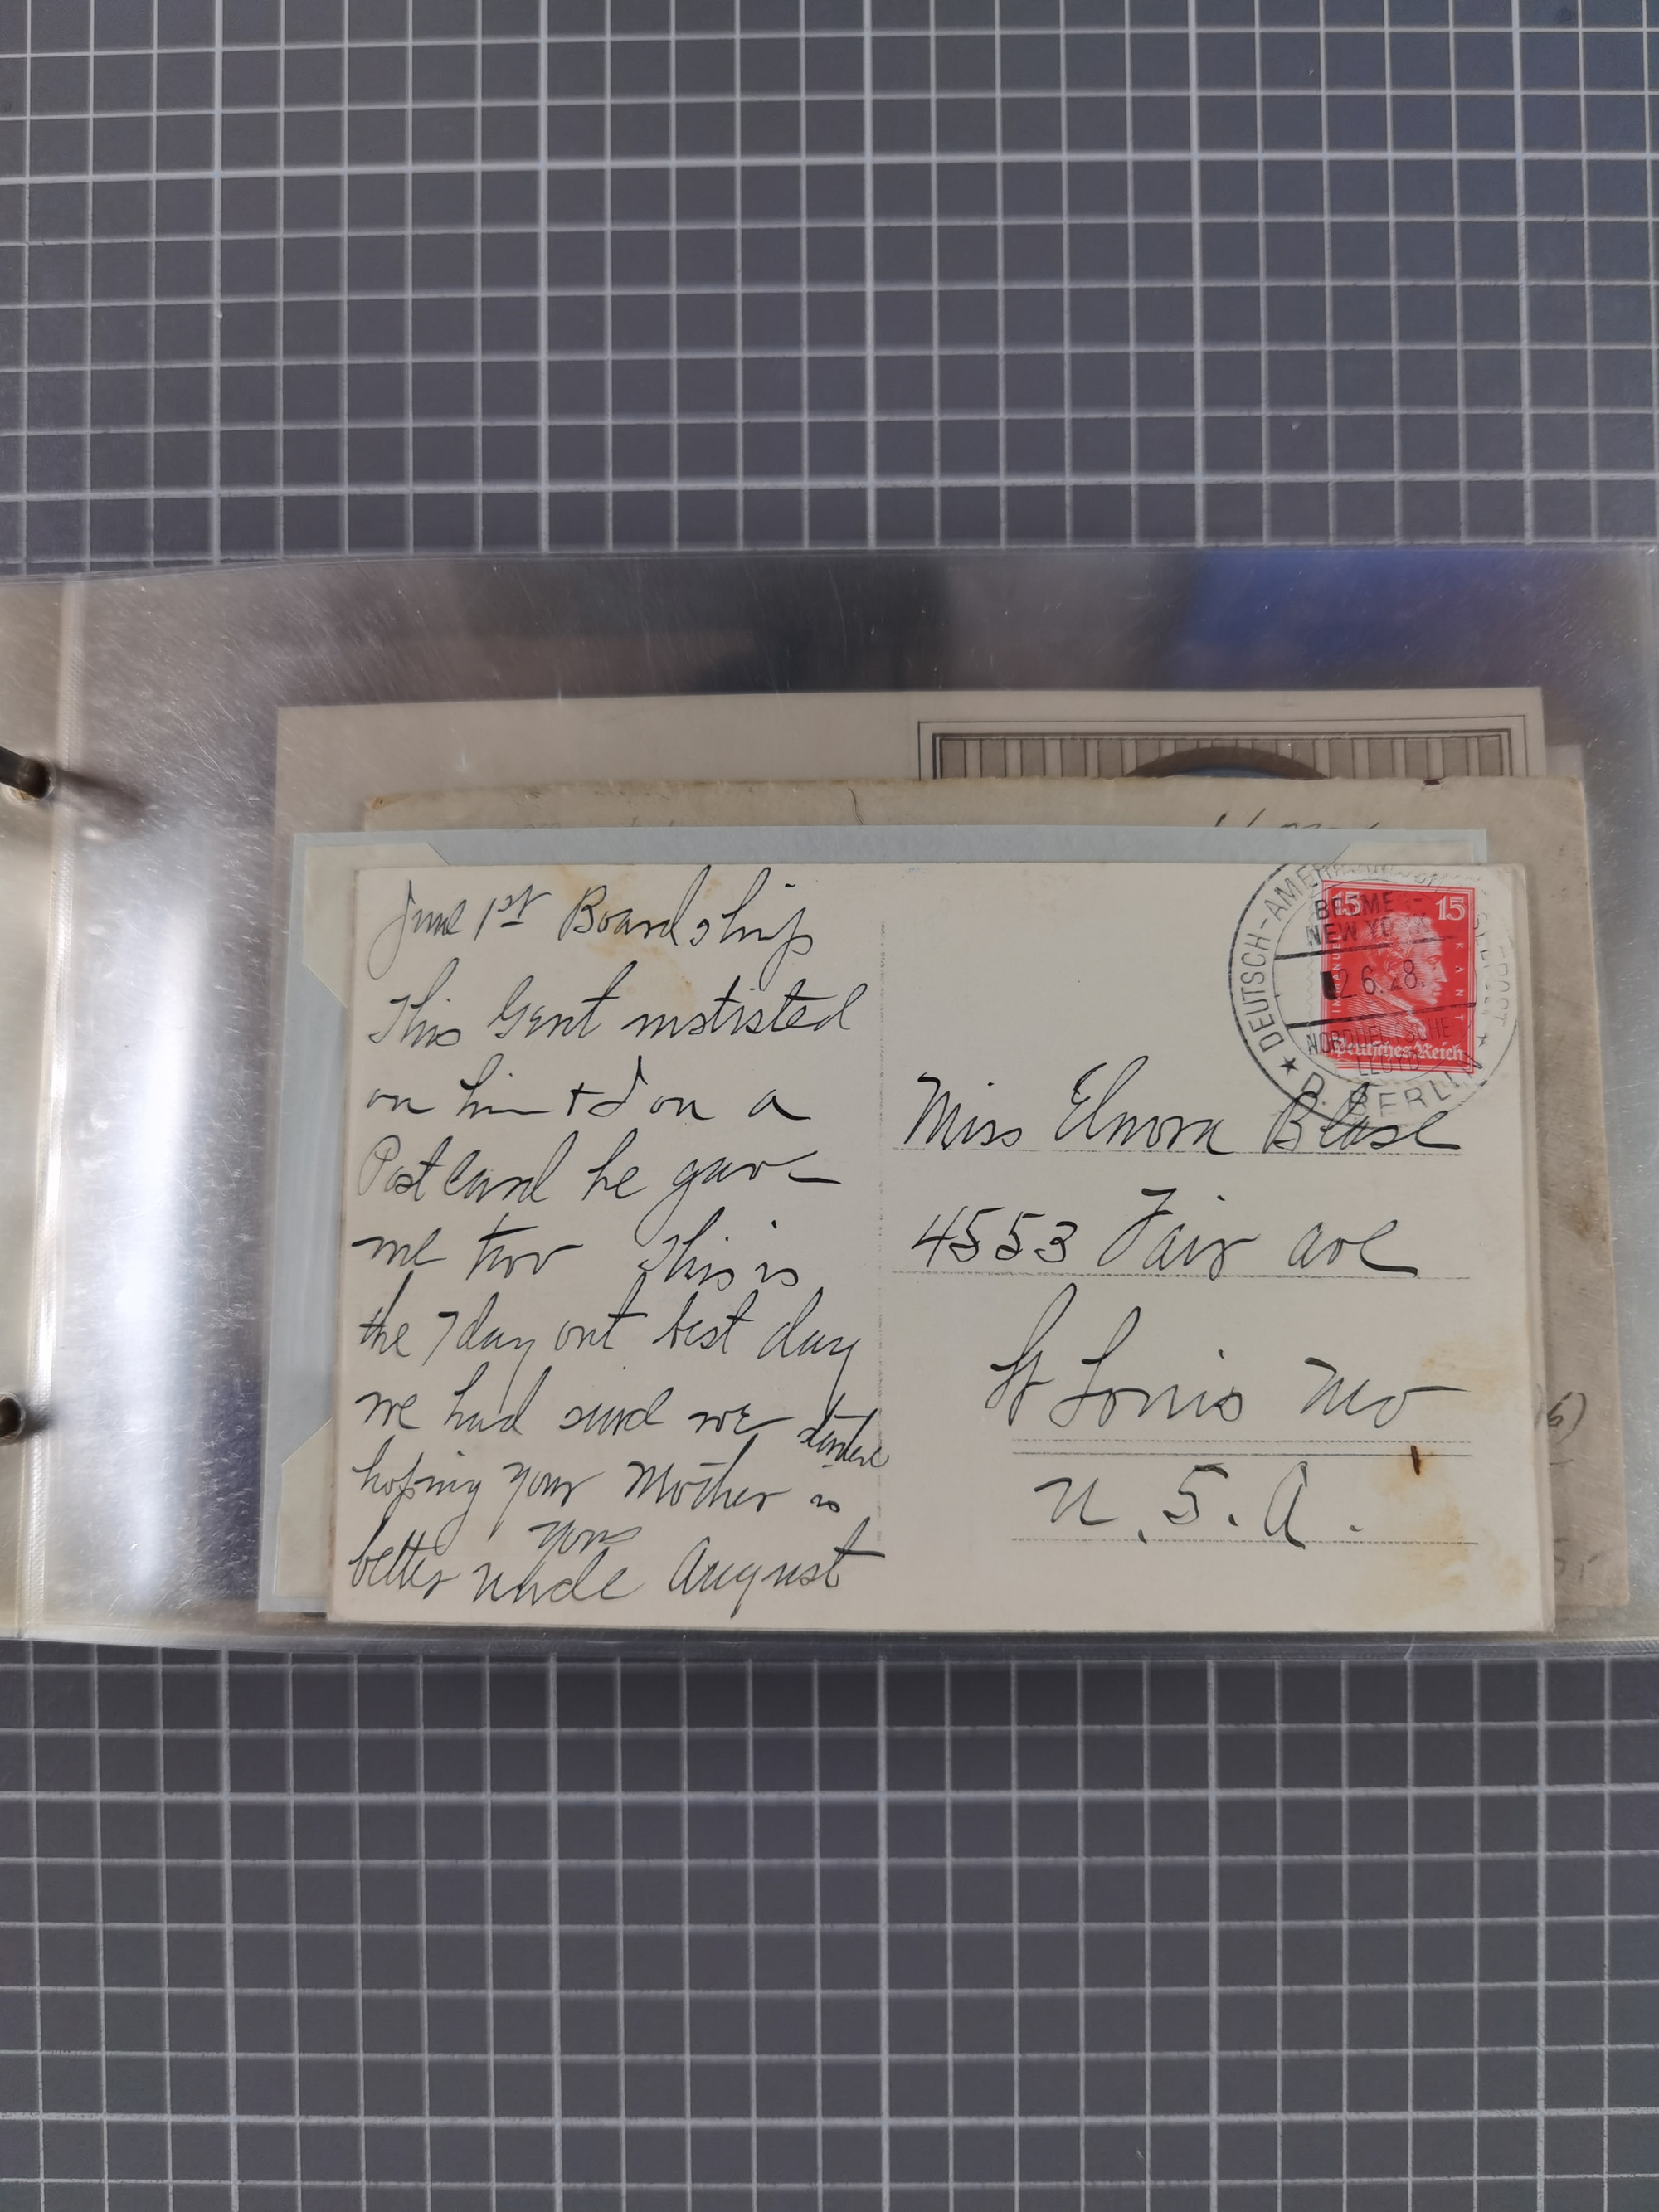 June 1st Board ship
This Gent instisted
on him + I on a
Post Card he gave
me two This is
the 7 day out best day
we had since we started
hoping your Mother is
better your
uncle August
DEUTSCH-AMERIK.
BREMEN-
NEW YORK
2.6.28.
NORDDEUTSCHE
LLOYD
D. BERLIN
15 15
KANT
Deutsches Reich
Miss Elnora Blase
4553 Fair ave
St Louis Mo
U.S.A.